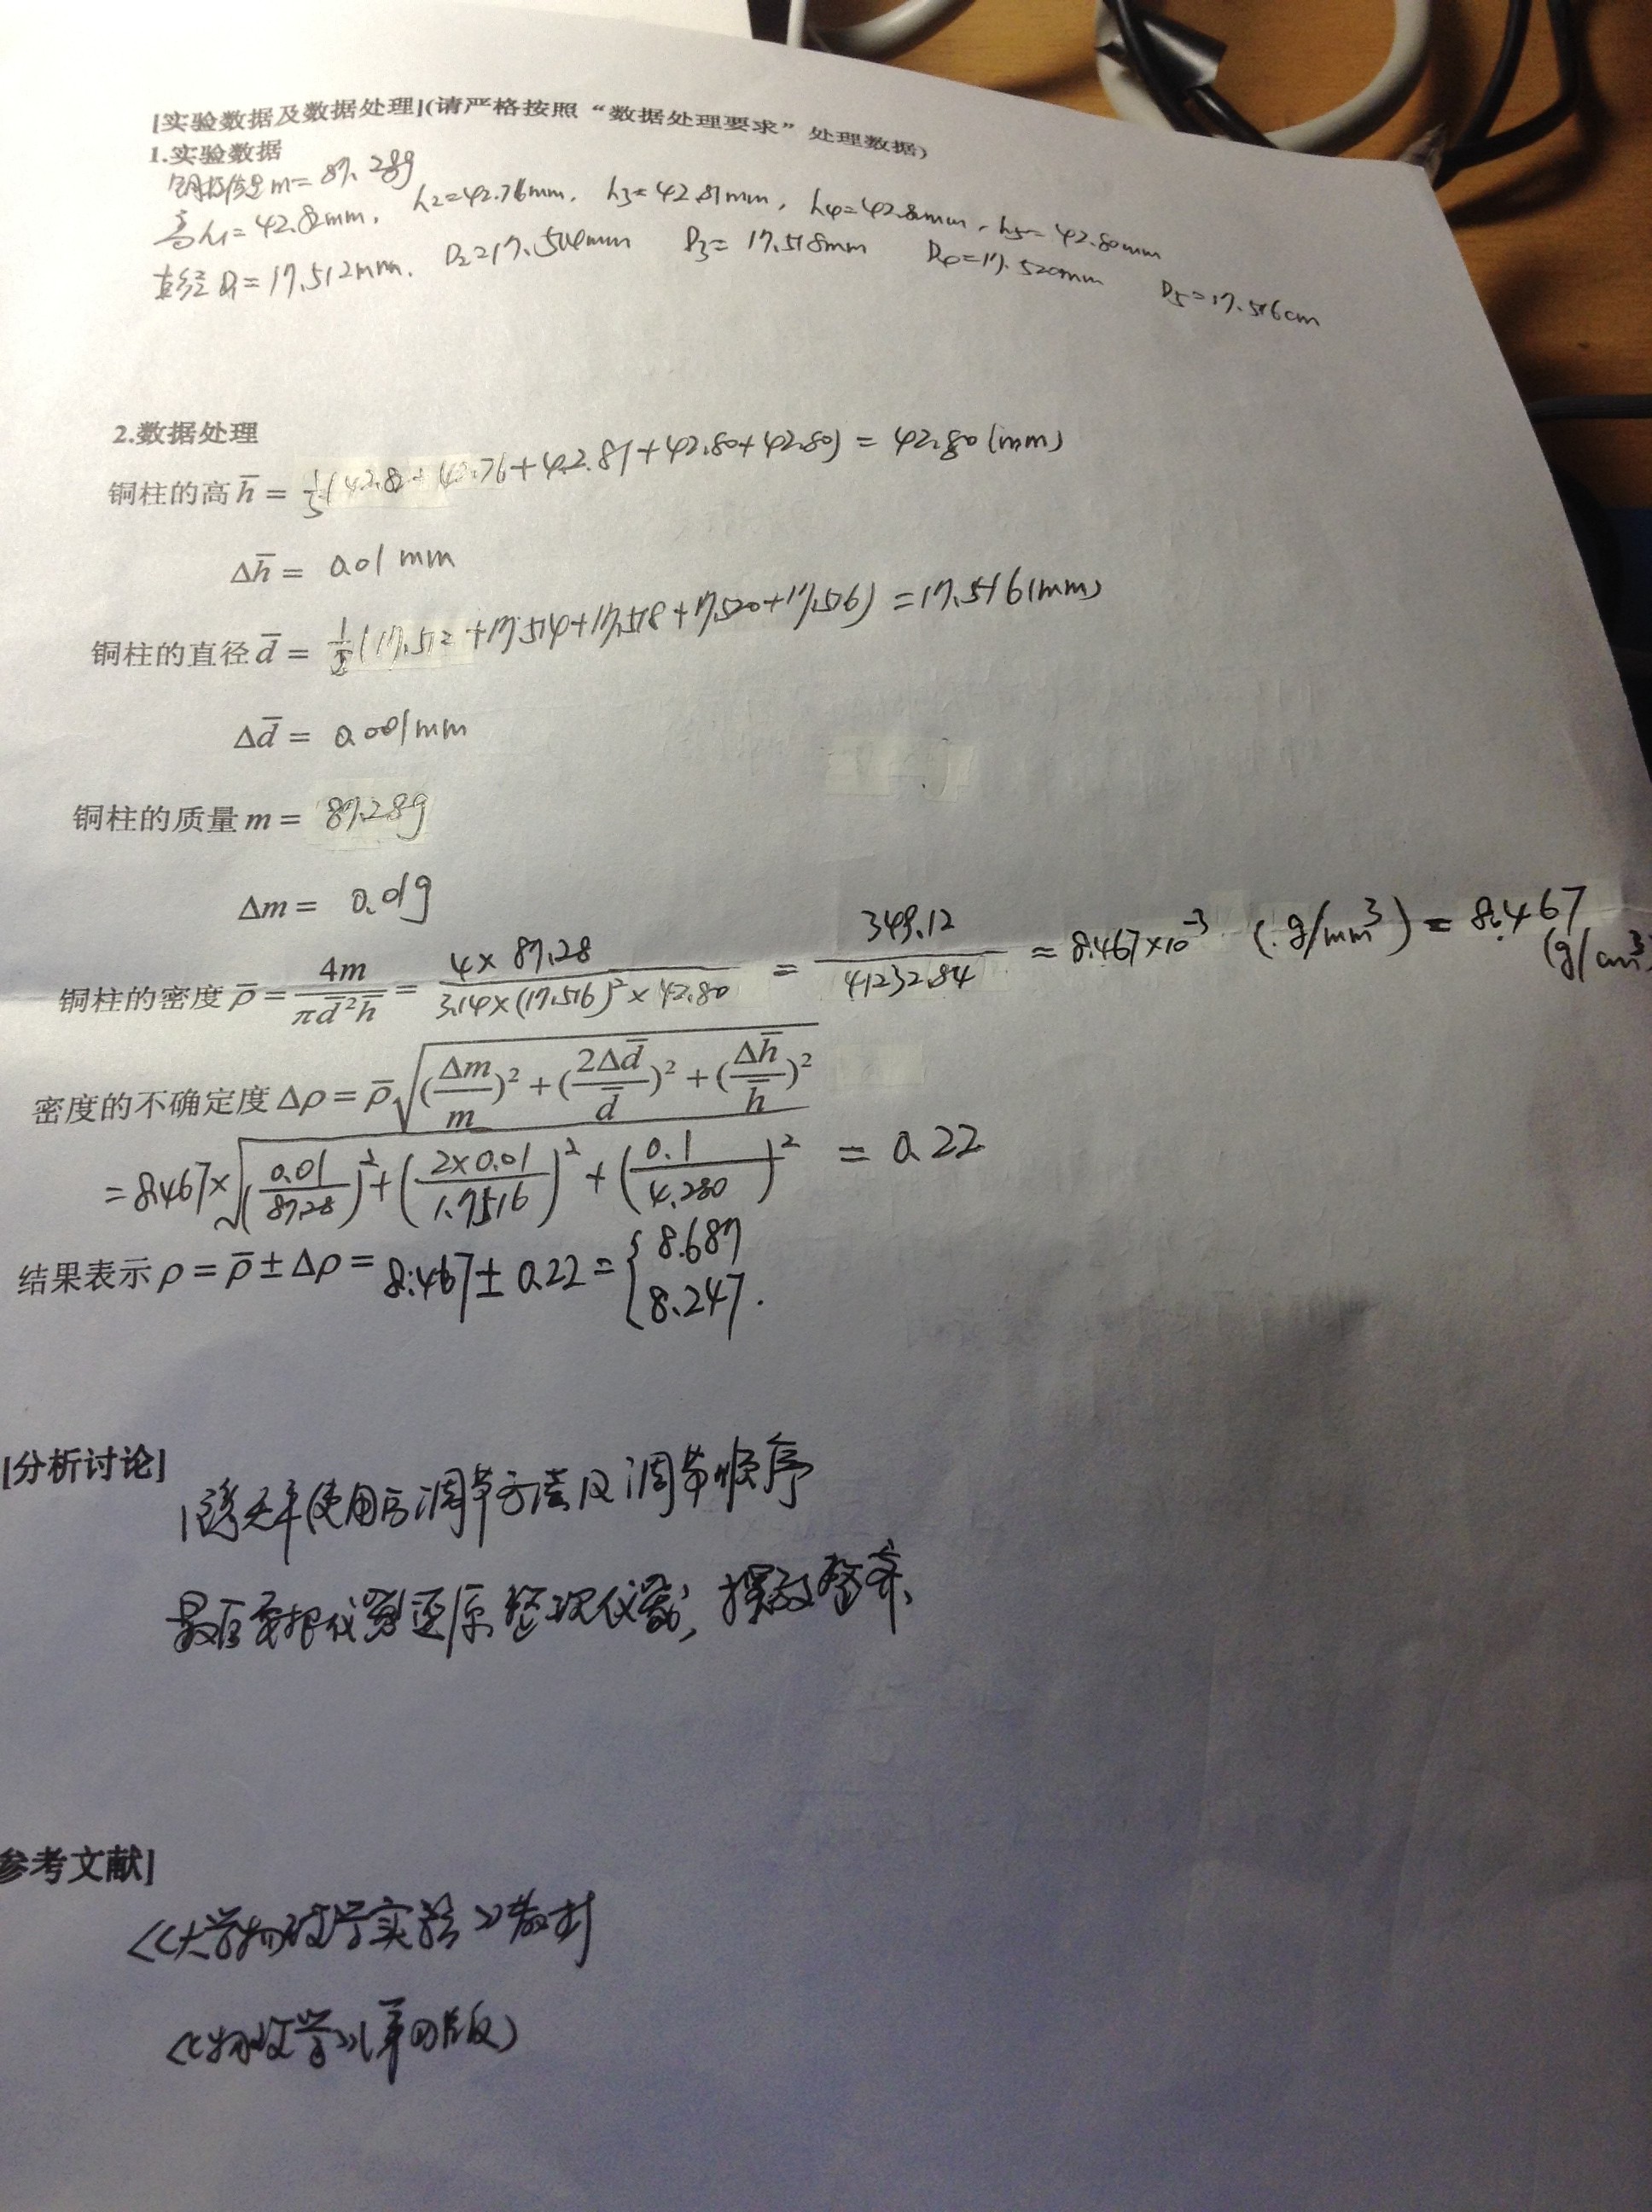 [实验数据及数据处理](请严格按照“数据处理要求”处理数据)
1.实验数据
m=87.28g
高h1=42.82mm, h2=42.76mm, h3=42.81mm, h4=42.80mm, h5=42.80mm
直径D1=17.512mm. D2=17.514mm D3=17.518mm D4=17.520mm D5=17.516cm
2.数据处理
铜柱的高 h̄ = 1/5(42.82+42.76+42.81+42.80+42.80) = 42.80 (mm)
Δh̄ = 0.01mm
铜柱的直径 d̄ = 1/5(17.512+17.514+17.518+17.520+17.516) = 17.516(mm)
Δd̄ = 0.001mm
铜柱的质量 m = 87.28g
Δm = 0.01g
铜柱的密度 ρ̄ = 4m/πd̄²h̄ = 4×87.28/3.14×(17.516)²×42.80 = 349.12/41232.84 ≈ 8.467×10⁻³ (g/mm³) = 8.467 (g/cm³)
密度的不确定度 Δρ = ρ̄√(Δm/m)² + (2Δd̄/d̄)² + (Δh̄/h̄)²
= 8.467×√(0.01/87.28)²+(2×0.01/1.7516)²+(0.1/4.280)² = 0.22
结果表示 ρ = ρ̄ ± Δρ = 8.467±0.22 = { 8.687
8.247.
[分析讨论]
天平使用后调节方法及调节顺序
最后要把仪器还原整理仪器, 摆放整齐.
参考文献]
<<大学物理学实验>>教材
<<物理学>>(第四版)